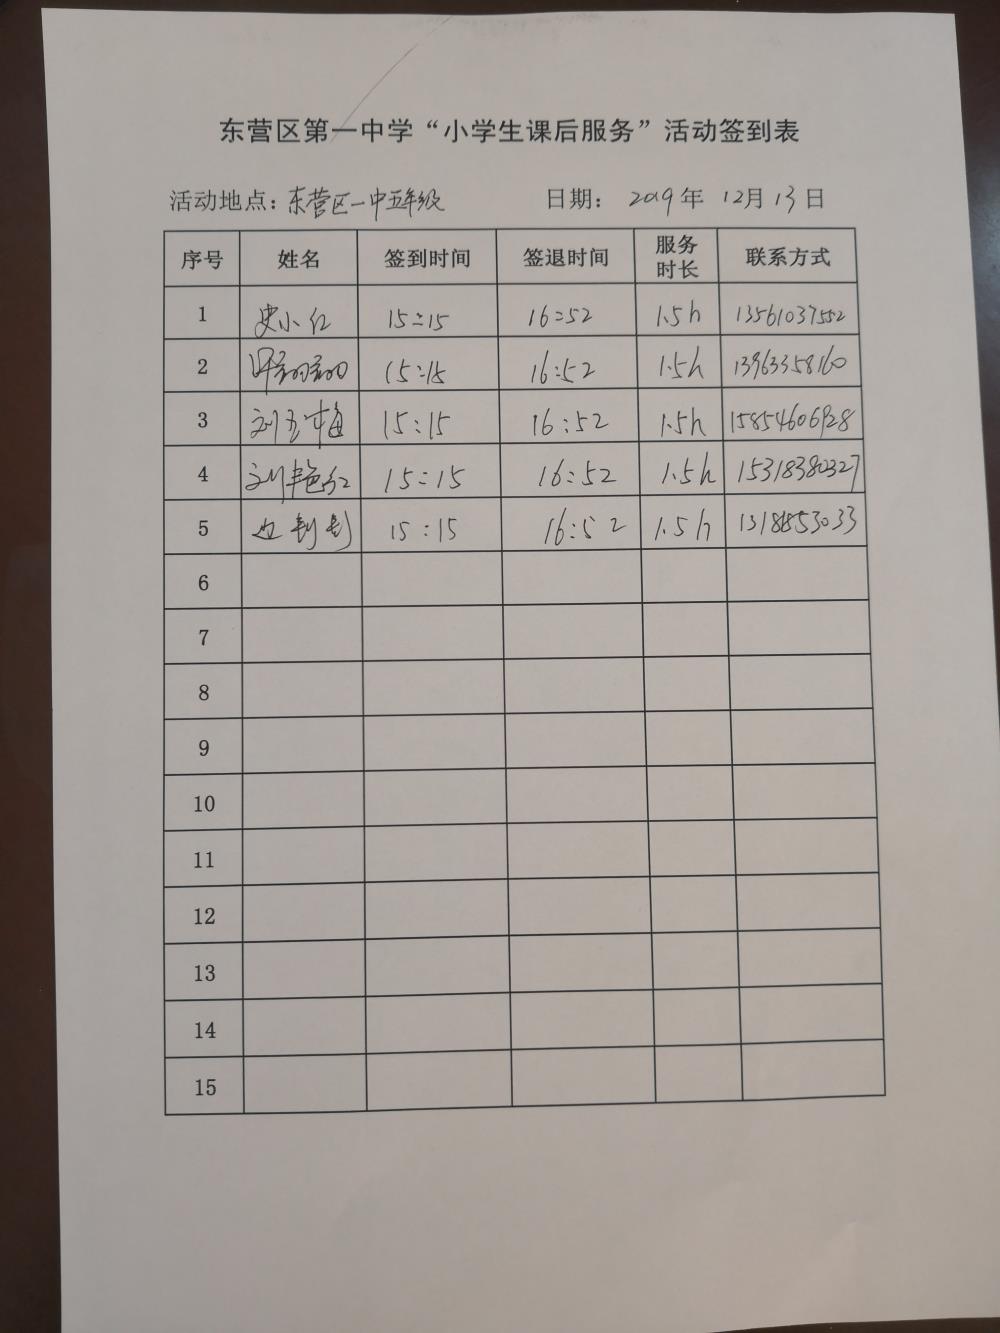 东营区第一中学“小学生课后服务”活动签到表
活动地点：东营区一中五年级 日期： 2019年 12月 13日
序号 姓名 签到时间 签退时间 服务时长 联系方式
1 史小红 15:15 16:52 1.5h 13561037552
2 15:15 16:52 1.5h 13963358160
3 刘玉梅 15:15 16:52 1.5h 15854606928
4 刘艳红 15:15 16:52 1.5h 15318380327
5 15:15 16:52 1.5h
6
7
8
9
10
11
12
13
14
15